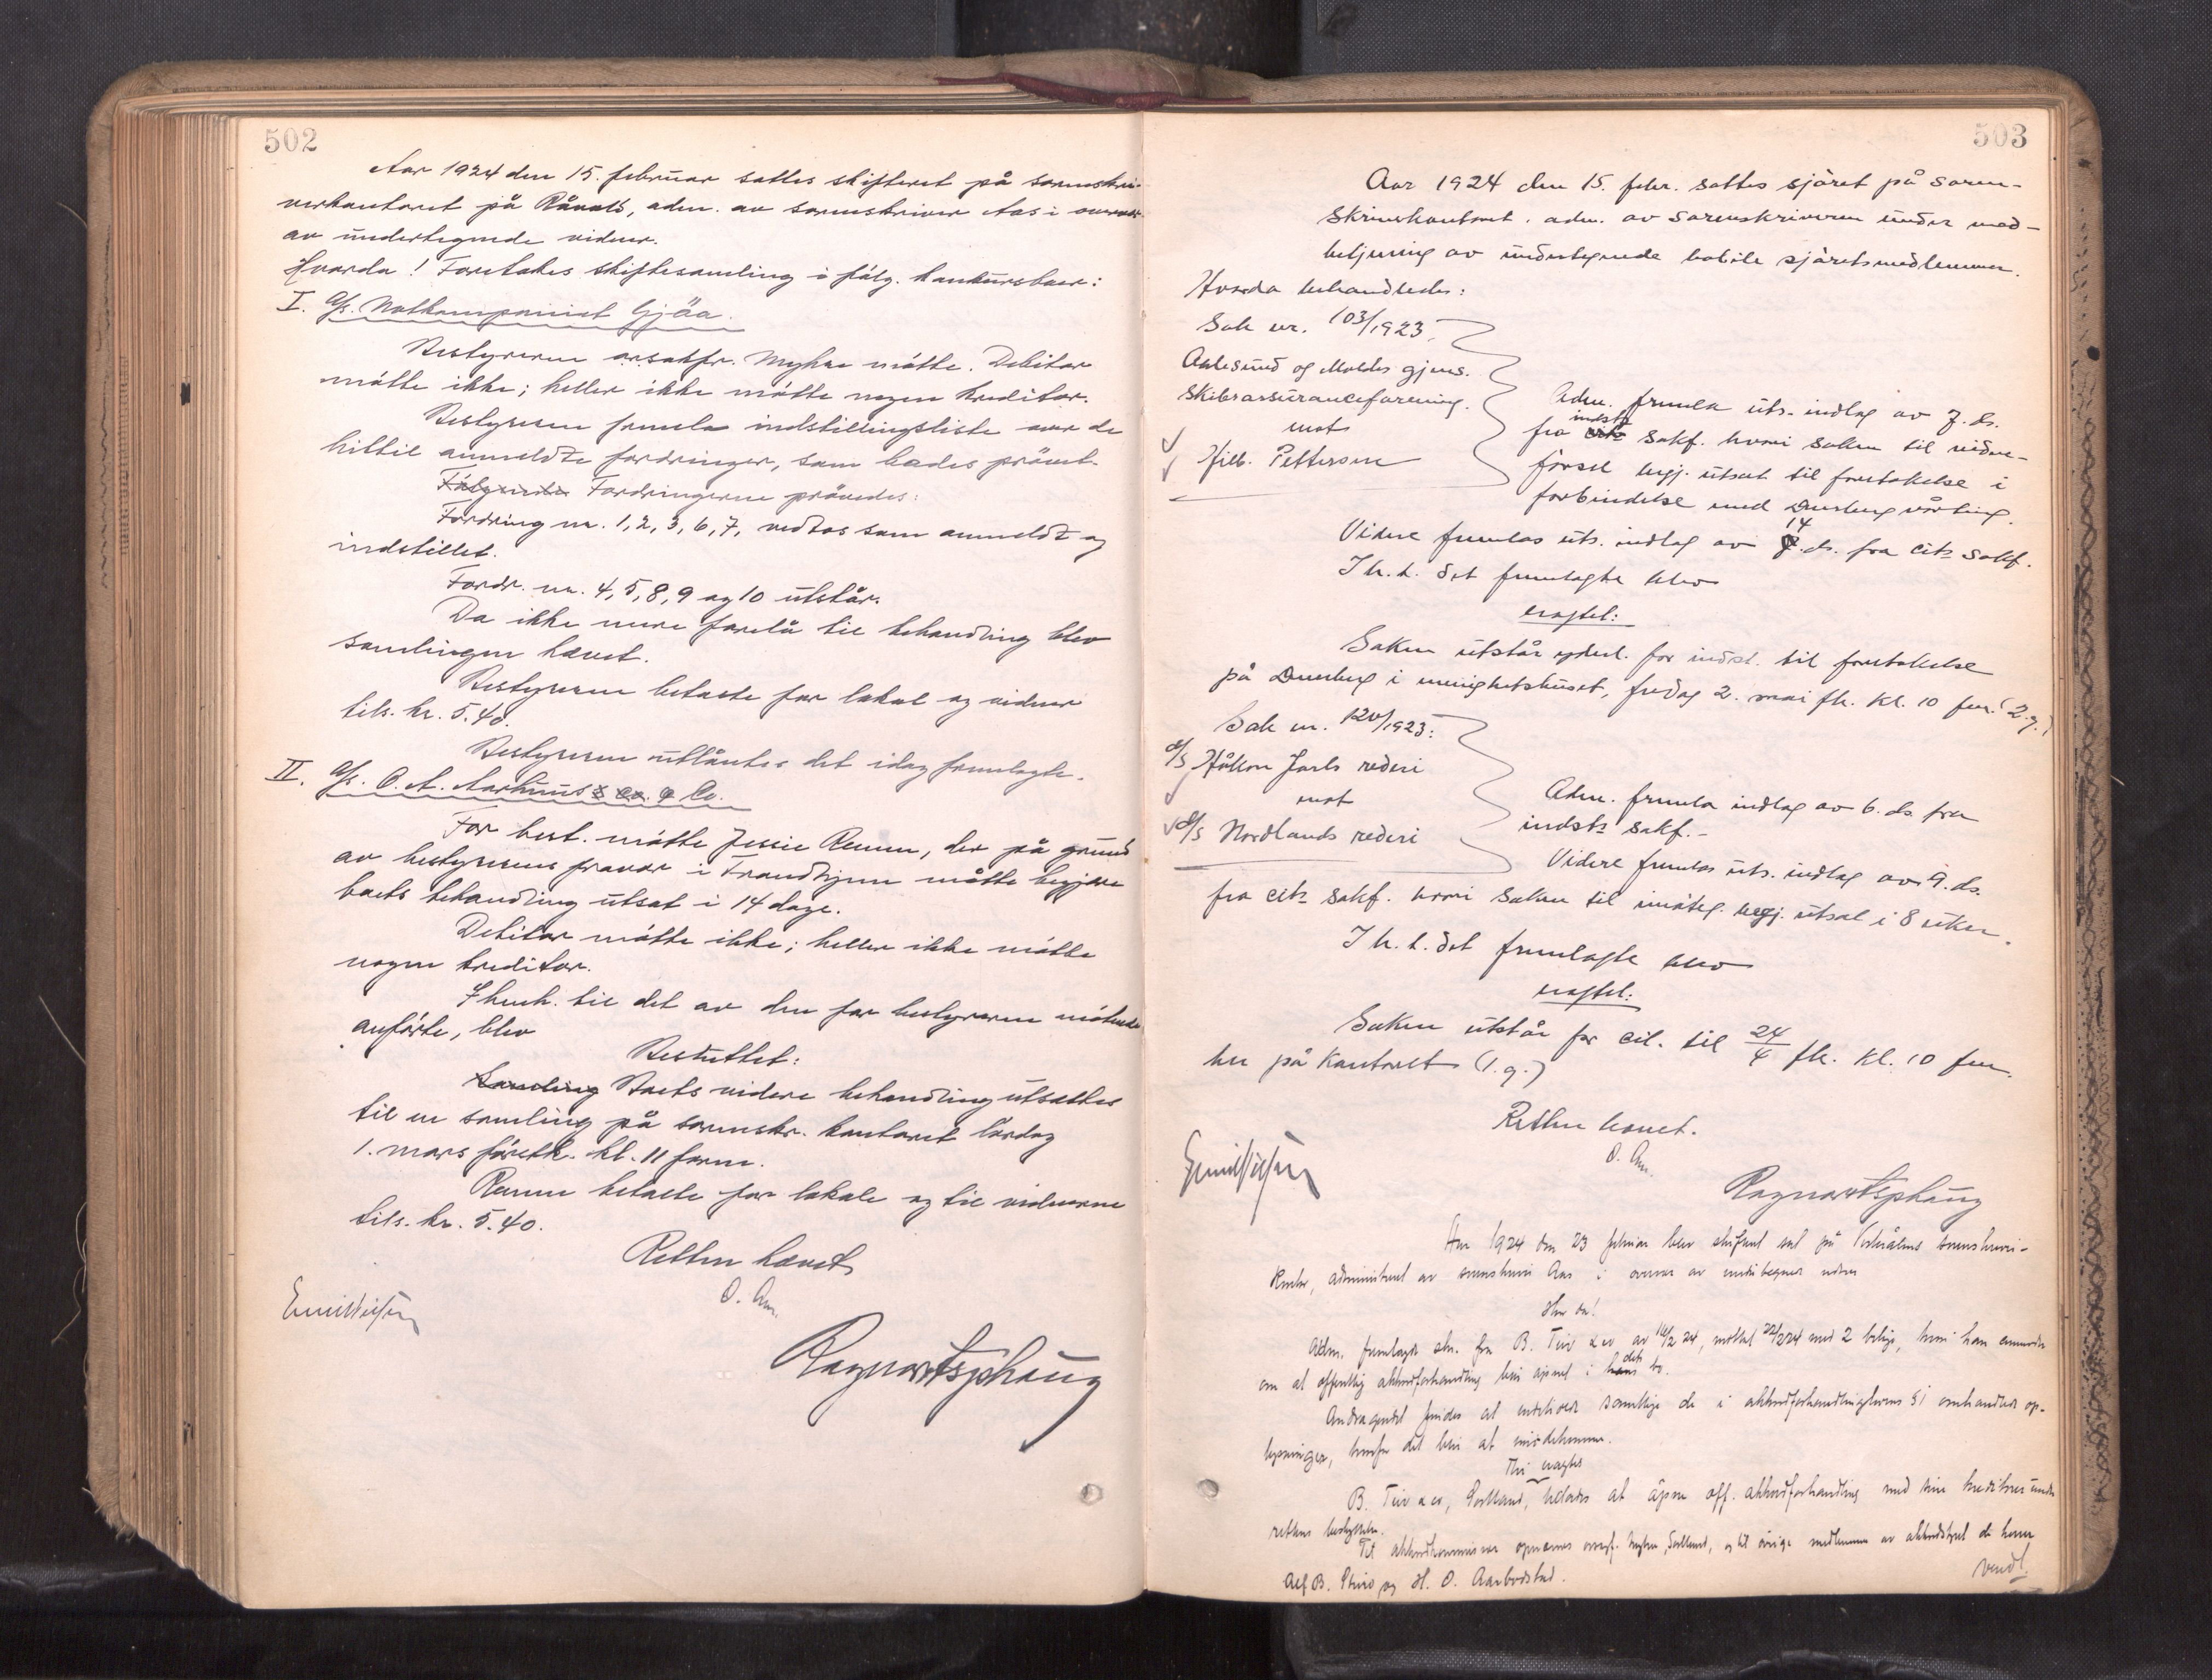 502
Aar 1924 den 15. februar sattes skifteret på sorenskri-
verkontoret på Råvold, adm. av sorenskriver Aas i overvær
av undertegnede vidner.
Hvorda! Foretokes skiftesamling i følg. konkursboer:
I. A/s. Notkompaniet Gjöa.
Bestyreren o.r.sakfr. Myhre mötte. Debitor
mötte ikke; heller ikke mötte nogen kreditor.
Bestyreren fremla indstillingsliste over de
hittil anmeldte fordringer, som bades prövet.
Fölgende Fordringerne prövedes:
Fordring nr. 1, 2, 3, 6, 7, vedtas som anmeldt og
indstillet.
Fordr. nr. 4, 5, 8, 9 og 10 utstår.
Da ikke mere forelå til behandling blev
samlingen hævet.
Bestyreren betalte for lokal og vidner
tils. kr. 5.40.
Bestyreren utlåntes det idag fremlagte.
II. A/s. O. A. Aarhus & Co. & Co.
For best. mötte Jessie Remm, der på grund
av bestyrerens fravær i Trondhjem måtte begjære
boets behandling utsat i 14 dage.
Debitor mötte ikke; heller ikke mötte
nogen kreditor.
I henh. til det av den for bestyreren mötende
anförte, blev
Besluttet:
Samling Boets videre behandling utsattes
til en samling på sorenskr. kontoret lördag
1. mars förstk. kl. 11 form.
Remm betalte for lokale og til vidnerne
tils. kr. 5.40.
Retten hævet
O. Aas.
Ragnar Asphaug
503
Aar 1924 den 15. febr. sattes sjöret på soren-
skriverkontoret. adm. av sorenskriveren under med-
betjening av undertegnede botile sjöretsmedlemmer.
Hvorda behandledes:
Sak nr. 103/1923.
Aalesund og Moldes gjens.
Skibsassuranceforening.
mot
Hilb. Pettersen
Adm. fremla uts. indlag av 7. ds.
fra cits indst sakf. hvori saken til vidne-
försel begj. utsat til foretakelse i
forbindelse med Durberg vårting.
Videre fremlas uts. indlag av 7 14. ds. fra cits sakf.
I h. t. det fremlagte blev
eragtet:
Saken utstår yderl. for indst. til foretakelse
på Durberg i menighetshuset, fredag 2. mai fk. kl. 10 fm. (2.g.)
Sak nr. 120/1923:
d/s Håkon Jarls rederi
mot
d/s Nordlands rederi
Adm. fremla indlag av 6. ds. fra
indsts sakf.-
Videre fremlas uts. indlag av 9. ds.
fra cits sakf. hvori saken til imöteg. begj. utsat i 8 uker.
I h. t. det fremlagte blev
eragtet:
Saken utstår for cit. til 24/4 fk. kl. 10 fm.
her på kontoret (1. g.)
Retten hævet.
O. Aas.
Ragnar Asphaug
Aar 1924 den 23 februar blev skifteret sat på sorenskriver-
kontor, administrert av sorenskriver Aas i overvær av undertegnede vidner
Hvor da!
Adm. fremlagde skr. fra B. Teiv & co av 16/2 24, mottat 22/2 24 med 2 bilag, hvori han anmoder
om at offentlig akkordforhandling blir åpnet i hans dets bo.
Andragendet findes at indeholde samtlige de i akkordforhandlingslovens § 1 omhandlede op-
lysninger, hvorfor det blir at imötekomme.
Thi eragtes
B. Teiv & co, tillades at åpne off. akkordforhandling med sine kreditorer under
rettens beskyttelse.
Til akkordkommissær opnævnes og til övrige medlemmer av akkordstyret de herrer
Alf B. og H. O. Aarbodstad.
Vendt